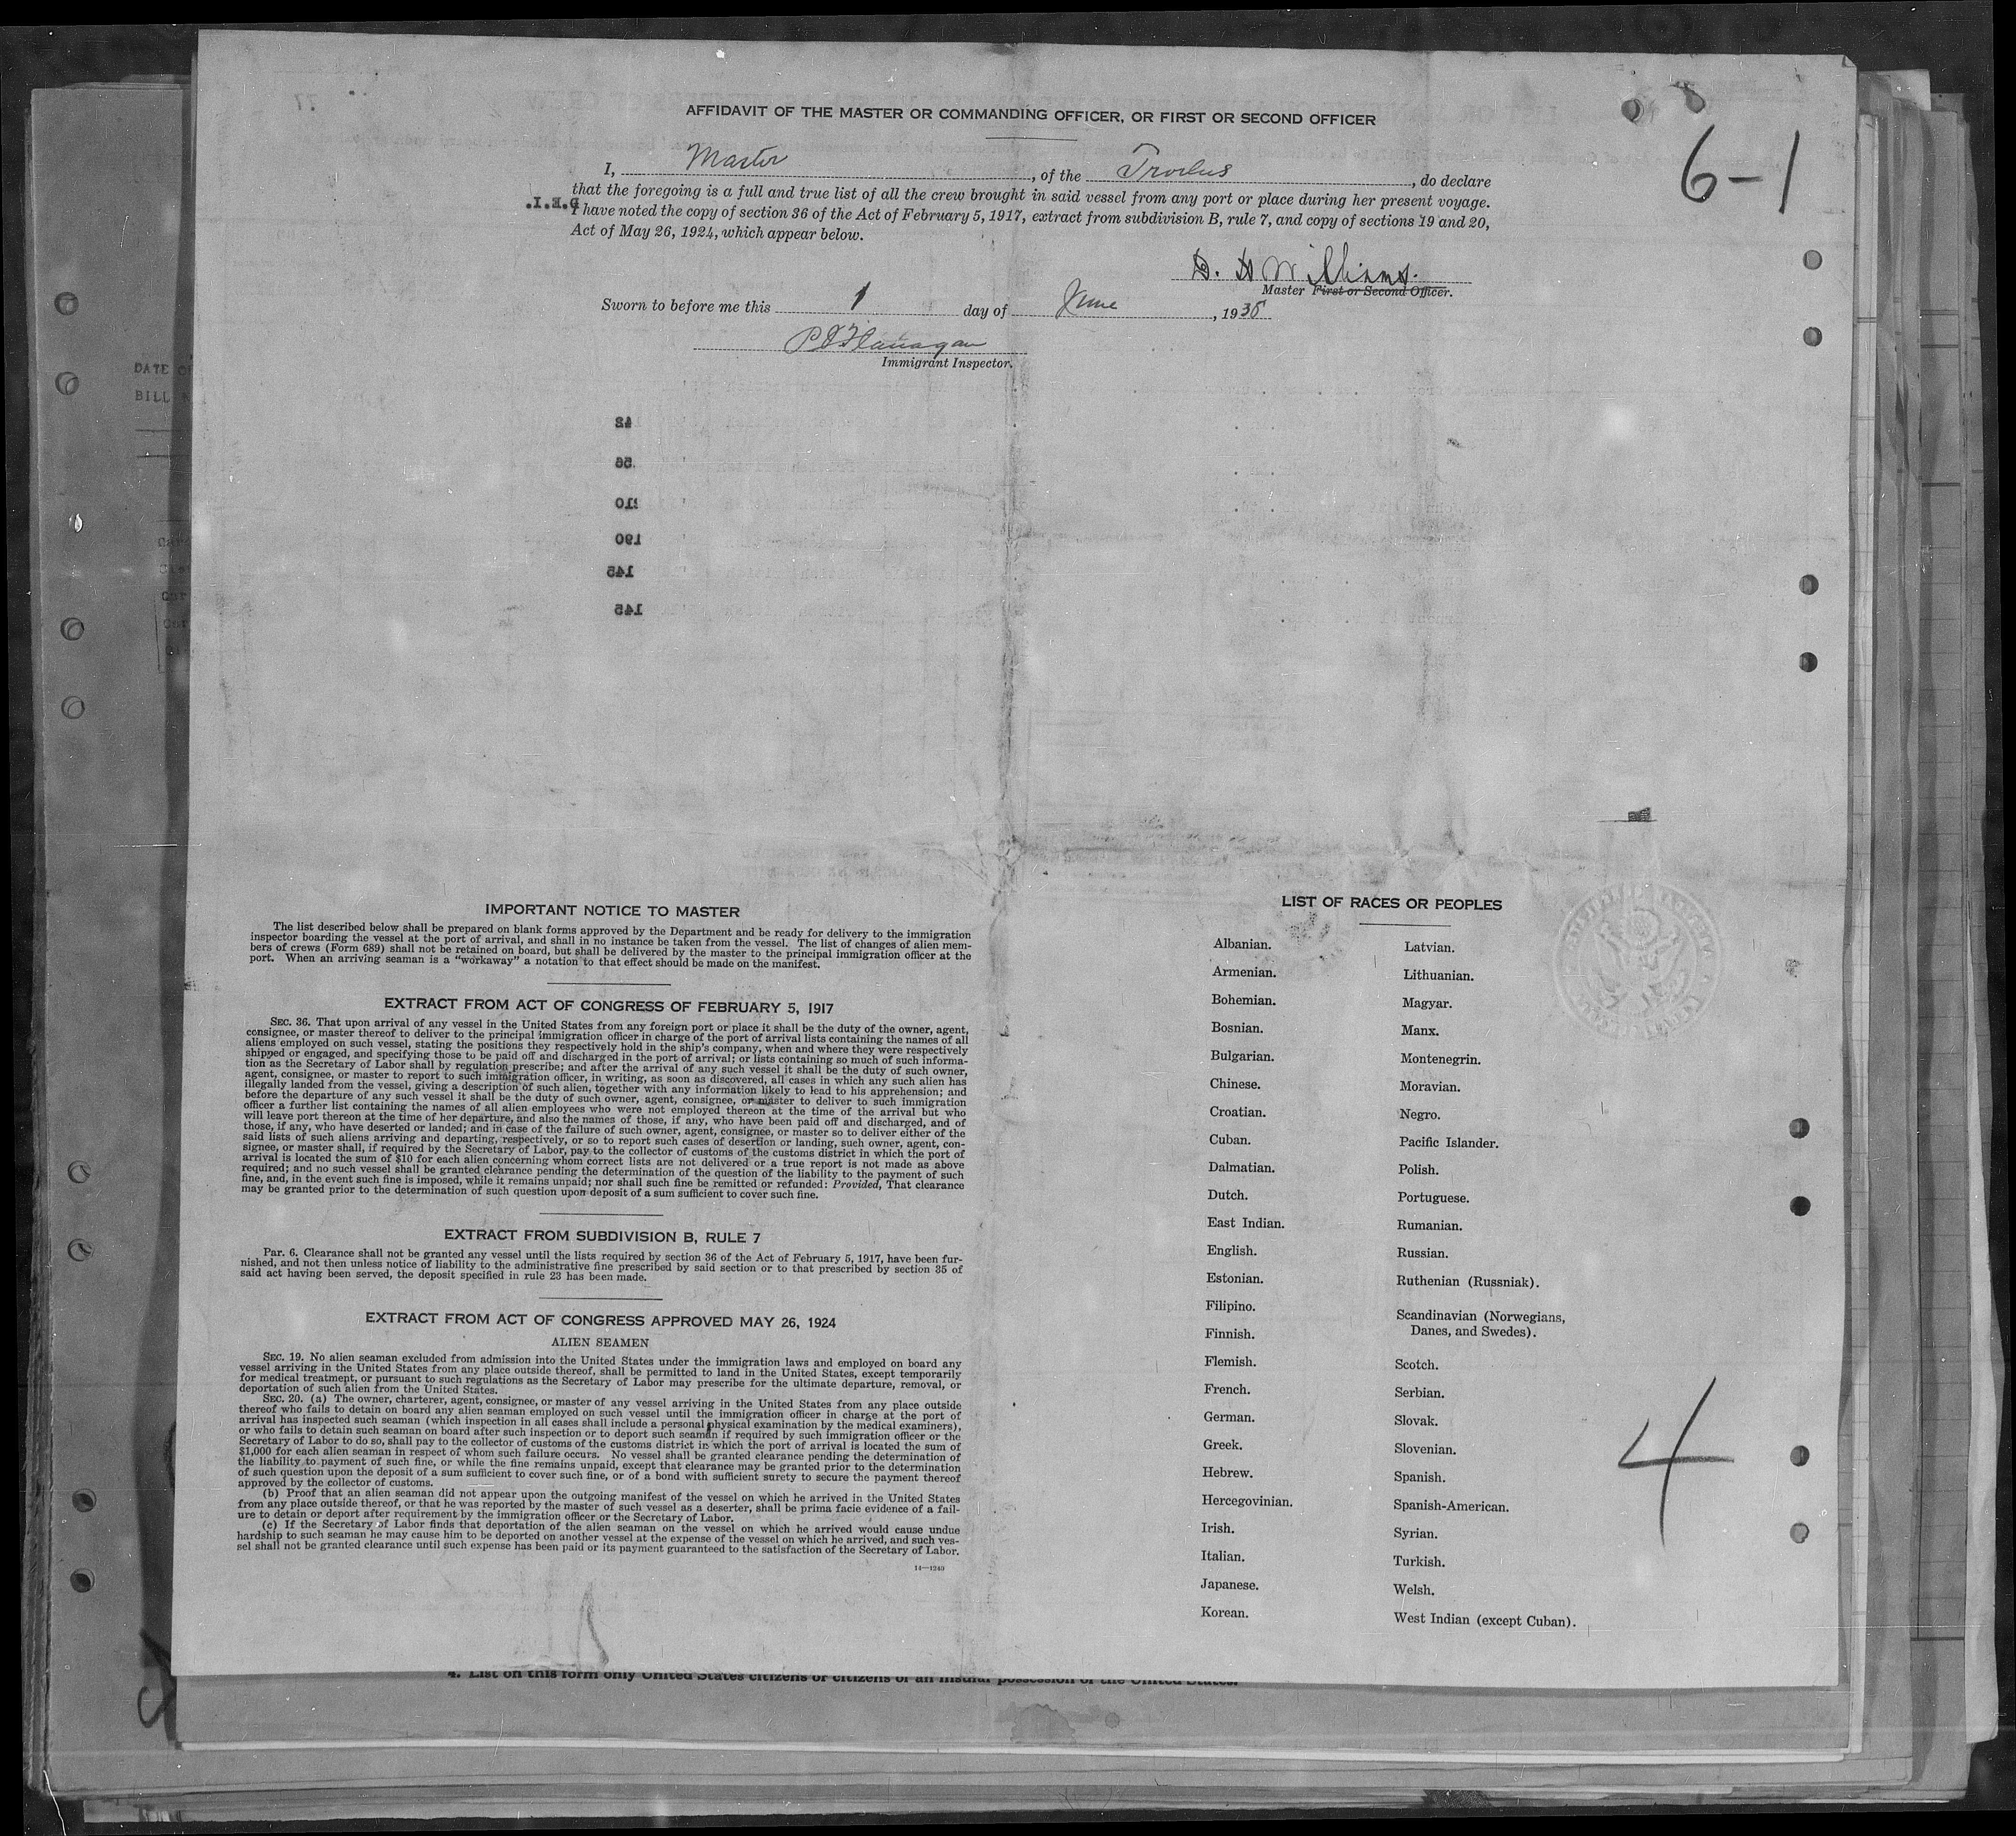 AFFIDAVIT OF THE MASTER OR COMMANDING OFFICER, OR FIRST OR SECOND OFFICER
6-1
I, Master, of the Troilus, do declare
that the foregoing is a full and true list of all the crew brought in said vessel from any port or place during her present voyage.
I have noted the copy of section 36 of the Act of February 5, 1917, extract from subdivision B, rule 7, and copy of sections 19 and 20,
Act of May 26, 1924, which appear below.
D. H Williams.
Master First or Second Officer.
Sworn to before me this 1 day of June, 1935
P J Flanagan
Immigrant Inspector.
DATE
BILL
42
190
145
145
IMPORTANT NOTICE TO MASTER
The list described below shall be prepared on blank forms approved by the Department and be ready for delivery to the immigration
inspector boarding the vessel at the port of arrival, and shall in no instance be taken from the vessel. The list of changes of alien mem-
bers of crews (Form 689) shall not be retained on board, but shall be delivered by the master to the principal immigration officer at the
port. When an arriving seaman is a "workaway" a notation to that effect should be made on the manifest.
EXTRACT FROM ACT OF CONGRESS OF FEBRUARY 5, 1917
SEC. 36. That upon arrival of any vessel in the United States from any foreign port or place it shall be the duty of the owner, agent,
consignee, or master thereof to deliver to the principal immigration officer in charge of the port of arrival lists containing the names of all
aliens employed on such vessel, stating the positions they respectively hold in the ship's company, when and where they were respectively
shipped or engaged, and specifying those to be paid off and discharged in the port of arrival; or lists containing so much of such informa-
tion as the Secretary of Labor shall by regulation prescribe; and after the arrival of any such vessel it shall be the duty of such owner,
agent, consignee, or master to report to such immigration officer, in writing, as soon as discovered, all cases in which any such alien has
illegally landed from the vessel, giving a description of such alien, together with any information likely to lead to his apprehension; and
before the departure of any such vessel it shall be the duty of such owner, agent, consignee, or master to deliver to such immigration
officer a further list containing the names of all alien employees who were not employed thereon at the time of the arrival but who
will leave port thereon at the time of her departure, and also the names of those, if any, who have been paid off and discharged, and of
those, if any, who have deserted or landed; and in case of the failure of such owner, agent, consignee, or master so to deliver either of the
said lists of such aliens arriving and departing, respectively, or so to report such cases of desertion or landing, such owner, agent, con-
signee, or master shall, if required by the Secretary of Labor, pay to the collector of customs of the customs district in which the port of
arrival is located the sum of $10 for each alien concerning whom correct lists are not delivered or a true report is not made as above
required; and no such vessel shall be granted clearance pending the determination of the question of the liability to the payment of such
fine, and, in the event such fine is imposed, while it remains unpaid; nor shall such fine be remitted or refunded: Provided, That clearance
may be granted prior to the determination of such question upon deposit of a sum sufficient to cover such fine.
EXTRACT FROM SUBDIVISION B, RULE 7
Par. 6. Clearance shall not be granted any vessel until the lists required by section 36 of the Act of February 5, 1917, have been fur-
nished, and not then unless notice of liability to the administrative fine prescribed by said section or to that prescribed by section 35 of
said act having been served, the deposit specified in rule 23 has been made.
EXTRACT FROM ACT OF CONGRESS APPROVED MAY 26, 1924
ALIEN SEAMEN
SEC. 19. No alien seaman excluded from admission into the United States under the immigration laws and employed on board any
vessel arriving in the United States from any place outside thereof, shall be permitted to land in the United States, except temporarily
for medical treatment, or pursuant to such regulations as the Secretary of Labor may prescribe for the ultimate departure, removal, or
deportation of such alien from the United States.
SEC. 20. (a) The owner, charterer, agent, consignee, or master of any vessel arriving in the United States from any place outside
thereof who fails to detain on board any alien seaman employed on such vessel until the immigration officer in charge at the port of
arrival has inspected such seaman (which inspection in all cases shall include a personal physical examination by the medical examiners),
or who fails to detain such seaman on board after such inspection or to deport such seaman if required by such immigration officer or the
Secretary of Labor to do so, shall pay to the collector of customs of the customs district in which the port of arrival is located the sum of
$1,000 for each alien seaman in respect of whom such failure occurs. No vessel shall be granted clearance pending the determination of
the liability to payment of such fine, or while the fine remains unpaid, except that clearance may be granted prior to the determination
of such question upon the deposit of a sum sufficient to cover such fine, or of a bond with sufficient surety to secure the payment thereof
approved by the collector of customs.
(b) Proof that an alien seaman did not appear upon the outgoing manifest of the vessel on which he arrived in the United States
from any place outside thereof, or that he was reported by the master of such vessel as a deserter, shall be prima facie evidence of a fail-
ure to detain or deport after requirement by the immigration officer or the Secretary of Labor.
(c) If the Secretary of Labor finds that deportation of the alien seaman on the vessel on which he arrived would cause undue
hardship to such seaman he may cause him to be deported on another vessel at the expense of the vessel on which he arrived, and such ves-
sel shall not be granted clearance until such expense has been paid or its payment guaranteed to the satisfaction of the Secretary of Labor.
14—1240
LIST OF RACES OR PEOPLES
Albanian.
Armenian.
Bohemian.
Bosnian.
Bulgarian.
Chinese.
Croatian.
Cuban.
Dalmatian.
Dutch.
East Indian.
English.
Estonian.
Filipino.
Finnish.
Flemish.
French.
German.
Greek.
Hebrew.
Hercegovinian.
Irish.
Italian.
Japanese.
Korean.
Latvian.
Lithuanian.
Magyar.
Manx.
Montenegrin.
Moravian.
Negro.
Pacific Islander.
Polish.
Portuguese.
Rumanian.
Russian.
Ruthenian (Russniak).
Scandinavian (Norwegians,
Danes, and Swedes).
Scotch.
Serbian.
Slovak.
Slovenian.
Spanish.
Spanish-American.
Syrian.
Turkish.
Welsh.
West Indian (except Cuban).
4
4. List on this form only United States citizens or citizens of an insular possession of the United States.